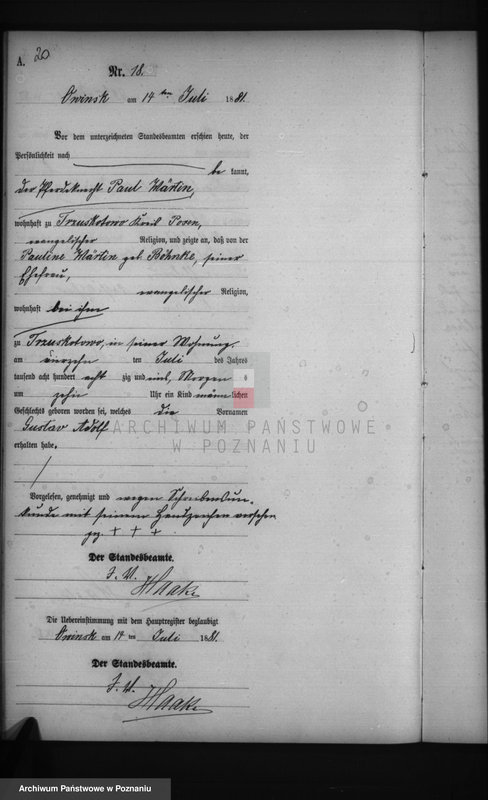 A. 20
Nr. 18.
Owinsk am 14 ten Juli 1881.
Vor dem unterzeichneten Standesbeamten erschien heute, der
Persönlichkeit nach
be kannt,
der Pferdeknecht Paul Märtin,
wohnhaft zu Trzuskotowo Kreis Posen,
evangelischer Religion, und zeigte an, daß von der
Pauline Märtin geb. Böhnke, seiner
Ehefrau,
evangelischer Religion,
wohnhaft bei ihm
zu Trzuskotowo, in seiner Wohnung,
am vierzehn ten Juli des Jahres
tausend acht hundert acht zig und eins, Morgens
um zehn Uhr ein Kind männlichen
Geschlechts geboren worden sei, welches die Vornamen
Gustav Adolf
erhalten habe.
ARCHIWUM PAŃSTWOWE
W POZNANIU
Vorgelesen, genehmigt und wegen Schreibensun-
kunde mit seinem Handzeichen versehen
gez. + + +
Der Standesbeamte.
J. V.
Haake
Die Uebereinstimmung mit dem Hauptregister beglaubigt
Owinsk am 14 ten Juli 1881.
Der Standesbeamte.
J. V.
Haake
Archiwum Państwowe w Poznaniu